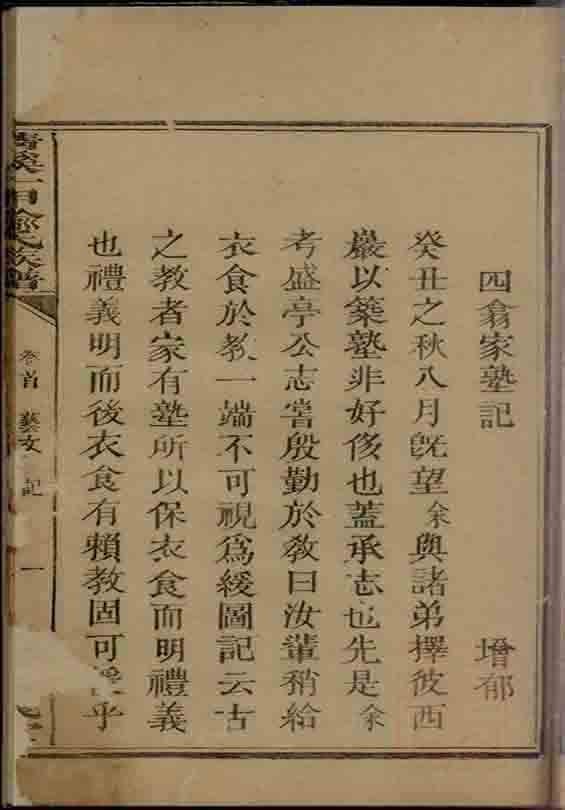 四翕家塾記
增郁
癸丑之秋八月旣望余與諸弟擇彼西
巖以築塾非好侈也蓋承志也先是余
考盛亭公志嘗殷勤於敎曰汝輩稍給
衣食於教一端不可視爲緩圖記云古
之教者家有塾所以保衣食而明禮義
也禮義明而後衣食有賴教固可乎
氏族譜
卷首 藝文 記 一